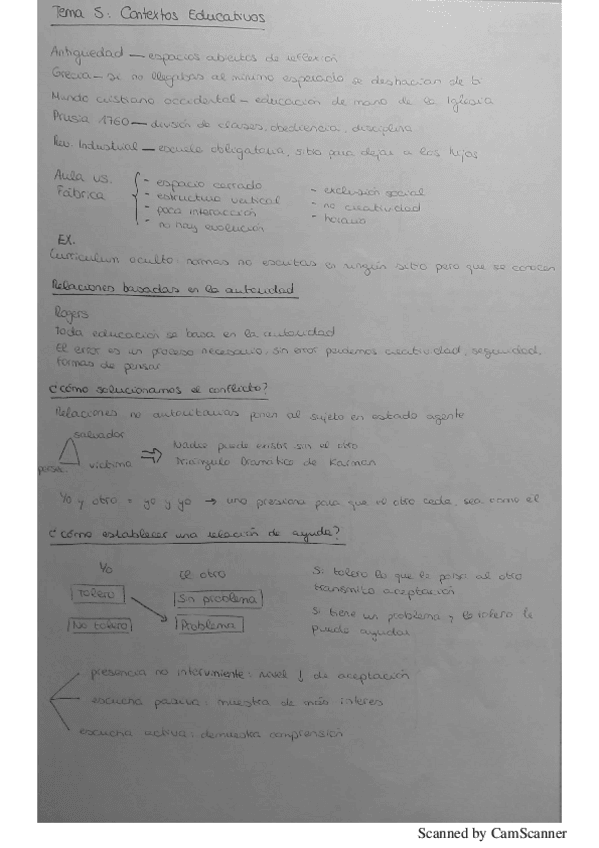 Tema 5: Contextos Educativos
Antigüedad — espacios abiertos de reflexión
Grecia — si no llegabas al mínimo esperado se deshacían de ti
Mundo cristiano occidental — educación de mano de la Iglesia
Prusia 1760 — división de clases, obediencia, disciplina
Rev. Industrial — escuela obligatoria, sitio para dejar a los hijos
Aula vs. Fábrica
- espacio cerrado
- estructura vertical
- poca interacción
- no hay evolución
- exclusión social
- no creatividad
- horario
EX.
Curriculum oculto: normas no escritas en ningún sitio pero que se conocen
Relaciones basadas en la autoridad
Rogers
Toda educación se basa en la autoridad
El error es un proceso necesario, sin error perdemos creatividad, seguridad,
formas de pensar
¿Cómo solucionamos el conflicto?
Relaciones no autoritarias ponen al sujeto en estado agente
salvador
perse. víctima
⇒ Nadie puede existir sin el otro
Triángulo Dramático de Karman
Yo y otro = yo y yo → uno presiona para que el otro ceda, sea como el
¿Cómo establecer una relación de ayuda?
Yo
El otro
Tolero
Sin problema
No tolero
Problema
Si tolero lo que le pasa al otro
transmito aceptación
Si tiene un problema y lo tolero le
puedo ayudar
presencia no interviniente: nivel ↓ de aceptación
escucha pasiva: muestra de más interés
escucha activa: demuestra comprensión
Scanned by CamScanner